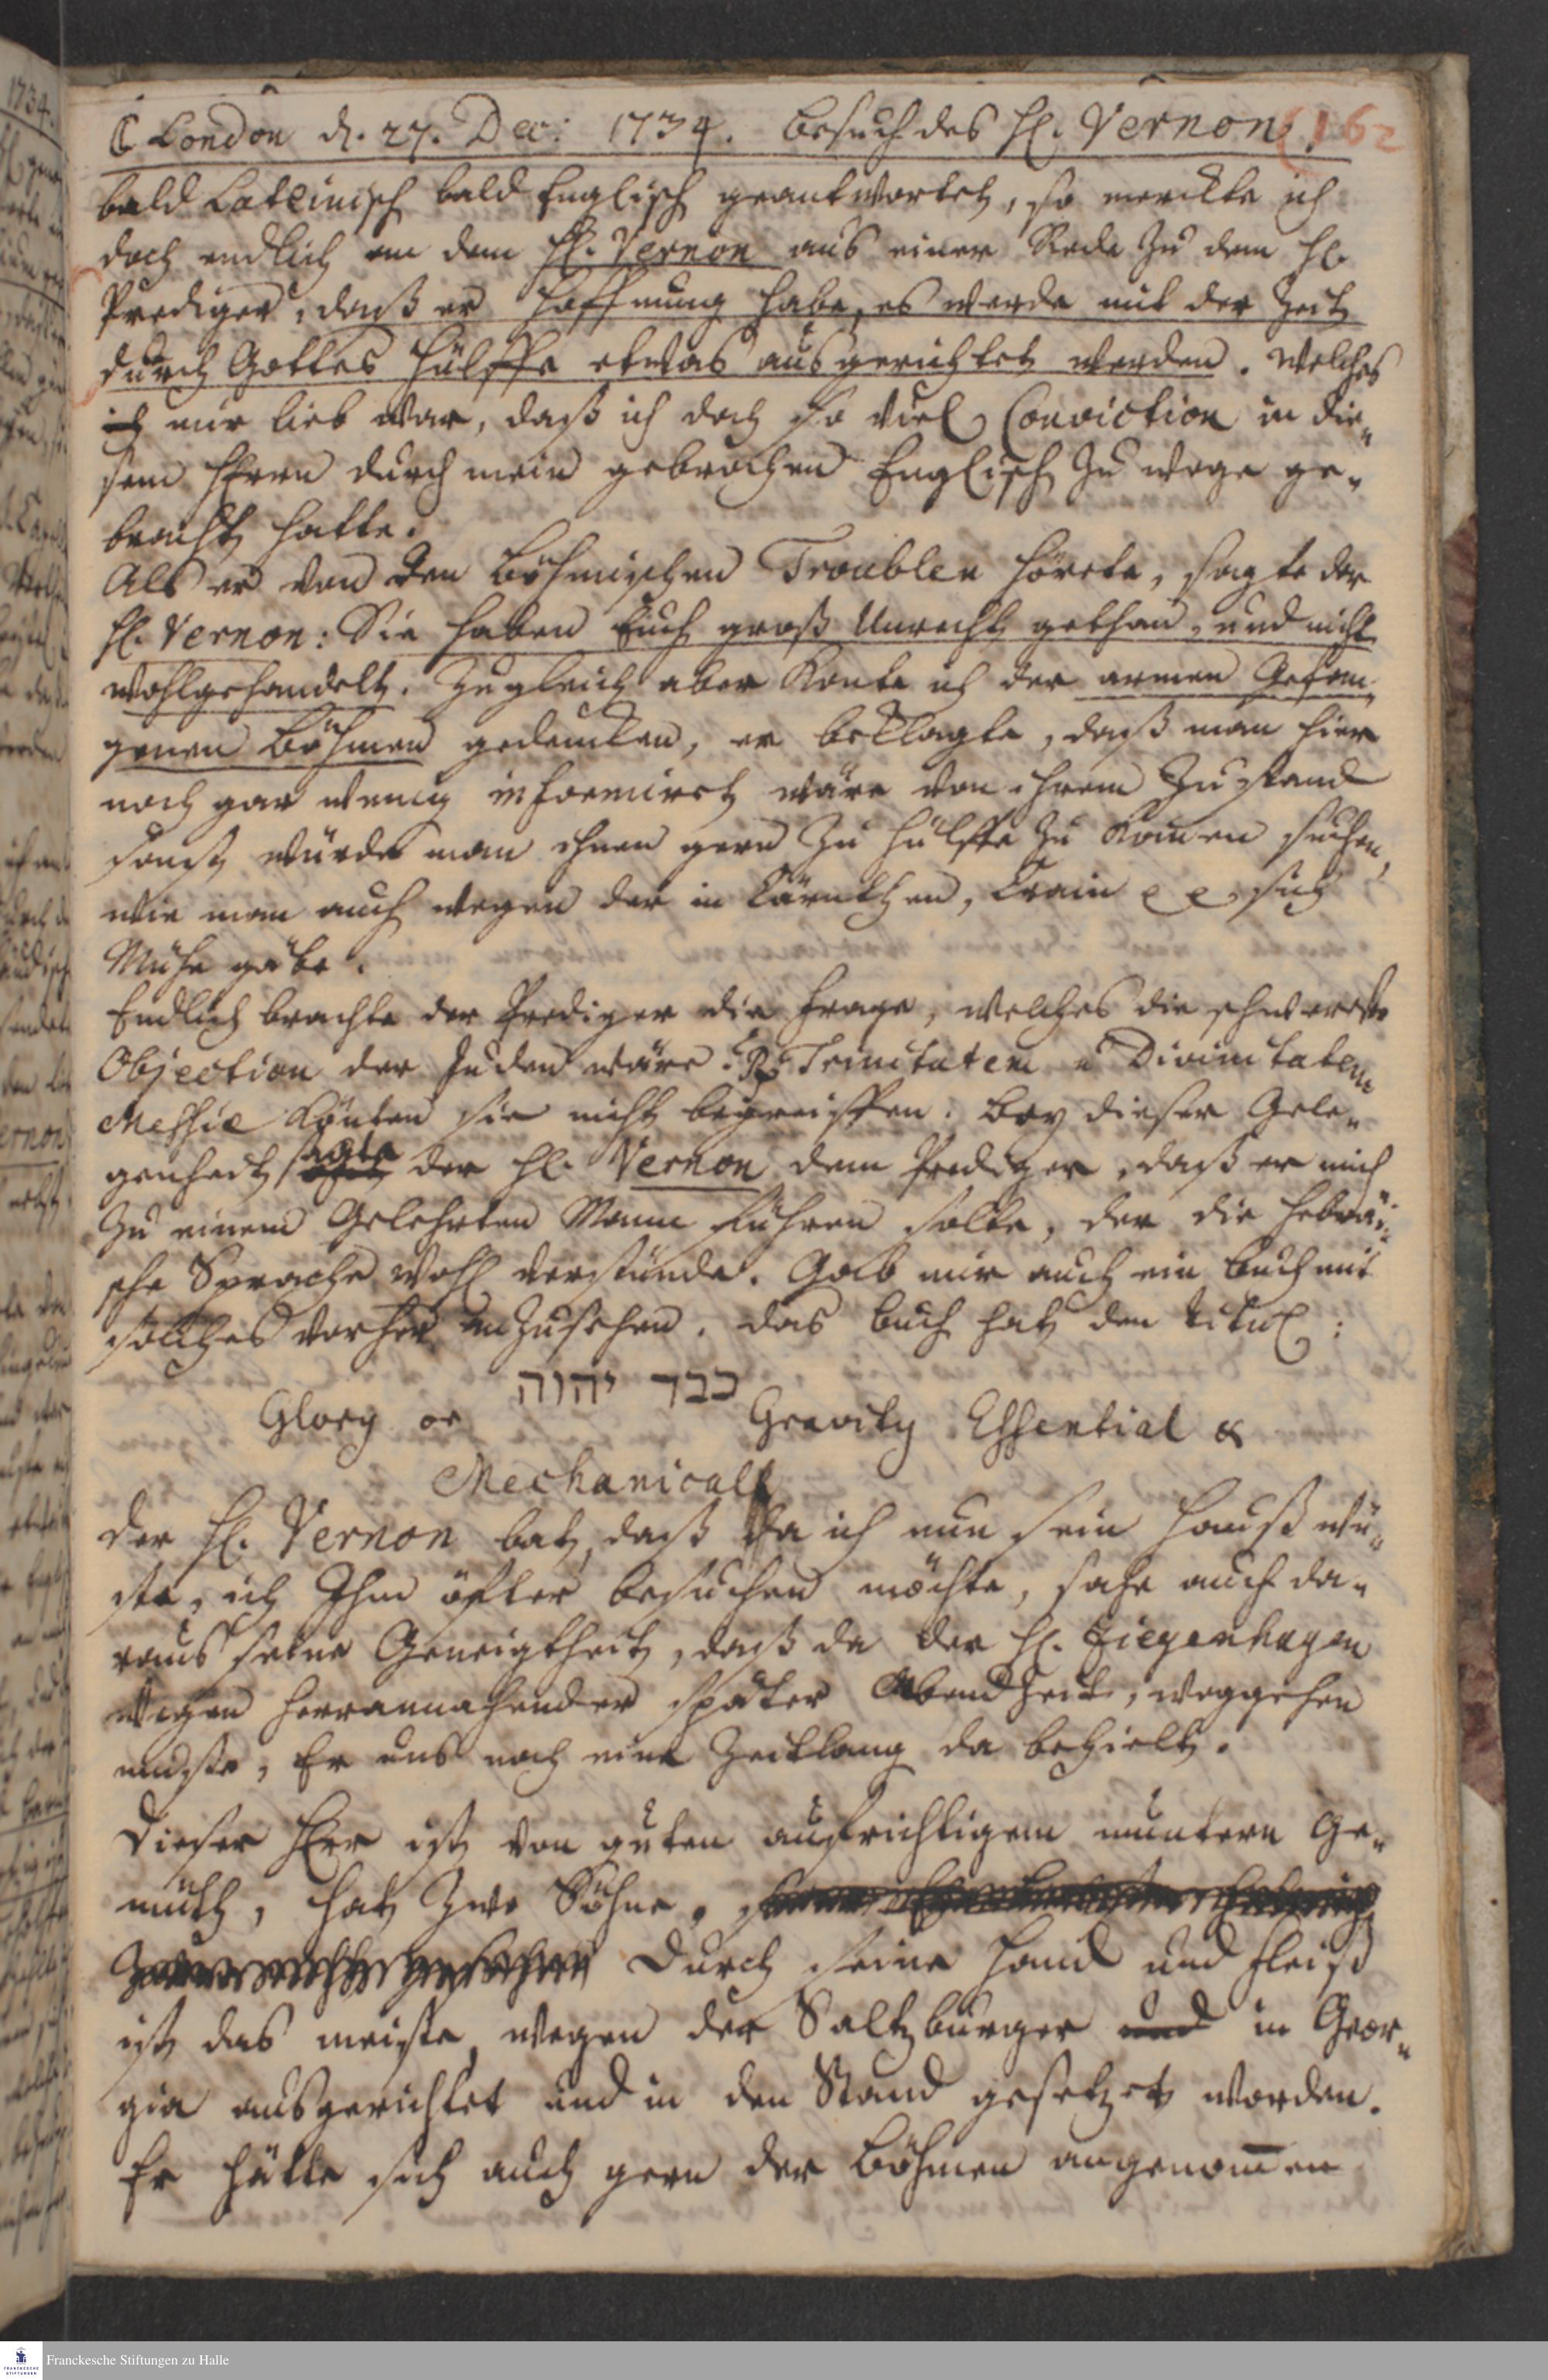 ☾ London d. 27. Dec: 1734. Besuch des H. Vernon. (162
bald Lateinisch bald Englisch geantwortet, so merckte ich
doch endlich an dem H. Vernon aus einer Rede zu dem H.
Prediger, daß er Hoffnung habe, es werde mit der Zeit
durch Gottes Hülffe etwas ausgerichtet werden. Welches
mir lieb war, daß ich doch so viel Conviction in die-
sem Herrn durch mein gebrochen Englisch zu wege ge-
bracht hatte.
Als er von den Böhmischen Troublen hörete, sagte der
H. Vernon: Sie haben Euch groß Unrecht gethan, und nicht
wohlgehandelt. Zugleich aber konte ich der armen Gefan-
genen Böhmen gedencken, er beklagte, daß man hier
noch gar wenig informiret wäre von ihrem Zustand
sonst würde man ihnen gern zu Hülffe zu kommen suchen,
wie man auch wegen der in Cärnthen, Crain sich
Mühe gäbe.
Endlich brachte der Prediger die Frage, welches die schwereste
Objection der Juden wäre. Rx Trinitatem u Divinitatem
Messiæ könten sie nicht begreiffen. Bey dieser Gele-
genheit sagte der H. Vernon dem Prediger, daß er mich
zu einem Gelehrten Mann führen solte, der die Hebräi-
sche Sprache wohl verstünde. Gab mir auch ein Buch mit
solches vorher anzusehen. das Buch hat den Titul:
כבד יהוה
Glory or Gravity Essential &
Mechanicall
Der H. Vernon bat, daß da ich nun sein Hauß wü-
ste, ich Ihm öfter besuchen möchte, sahe auch da-
raus seine Geneigtheit, daß da der H. Ziegenhagen
wegen herannahender später Abendzeit, weggehen
muste, Er uns noch eine Zeitlang da behielt.
Dieser Herr ist von guten aufrichtigem muntern Ge-
müth, hat zwo Söhne,
Durch seine Hand und Fleiß
ist das meiste wegen der Saltzburger und in Geor-
gia ausgerichtet und in den Stand gesetzet worden.
Er hätte sich auch gern der Böhmen angenommen
Franckesche Stiftungen zu Halle
FRANCKESCHE STIFTUNGEN